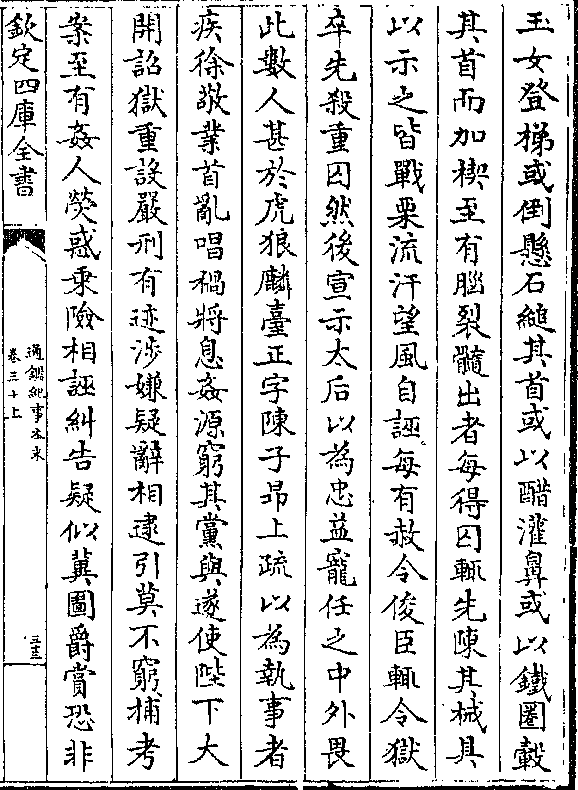 玉女登梯或倒懸石縋其首或以醋灌鼻或以鐵圈轂
其首而加楔至有腦裂髓出者每得囚輒先陳其械具
以示之皆戰栗流汗望風自誣每有赦令俊臣輒令獄
卒先殺重囚然後宣示太后以為忠益寵任之中外畏
此數人甚於虎狼麟臺正字陳子昻上疏以為執事者
疾徐敬業首亂唱禍將息姦源窮其黨與遂使陛下大
開詔獄重設嚴刑有迹涉嫌疑辭相逮引莫不窮捕考
案至有姦人熒惑乘險相誣糾告疑似冀圖爵賞恐非
欽定四庫全書
通鑑紀事本末
卷三十上